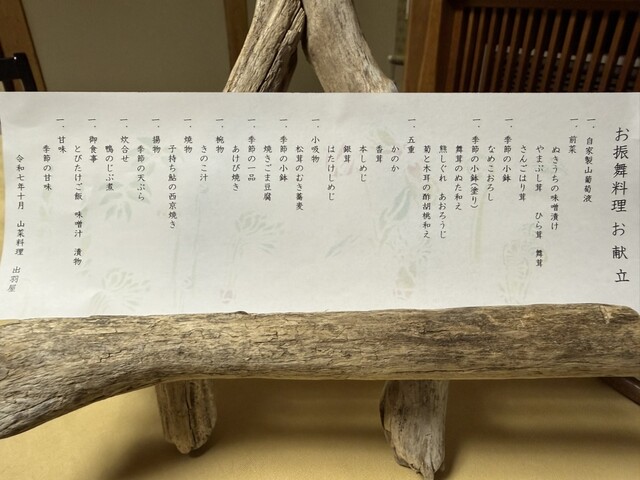 お振舞料理 お献立
一、自家製山葡萄液
一、前菜
ぬきうちの味噌漬け
やまぶし茸 ひら茸 舞茸
さんごはり茸
一、季節の小鉢
なめこおろし
一、季節の小鉢（塗り）
舞茸のぬた和え
熊しぐれ あおろうじ
菊と木耳の酢胡桃和え
一、五重
かのか
香茸
本しめじ
銀茸
はたけしめじ
一、小吸物
松茸のむき蕎麦
一、季節の小鉢
焼きごま豆腐
一、季節の一品
あけび焼き
一、椀物
きのこ汁
一、焼物
子持ち鮎の西京焼き
一、揚物
季節の天ぷら
一、炊合せ
鴨のじぶ煮
一、御食事
とびたけご飯 味噌汁 漬物
一、甘味
季節の甘味
令和七年十月 山菜料理 出羽屋